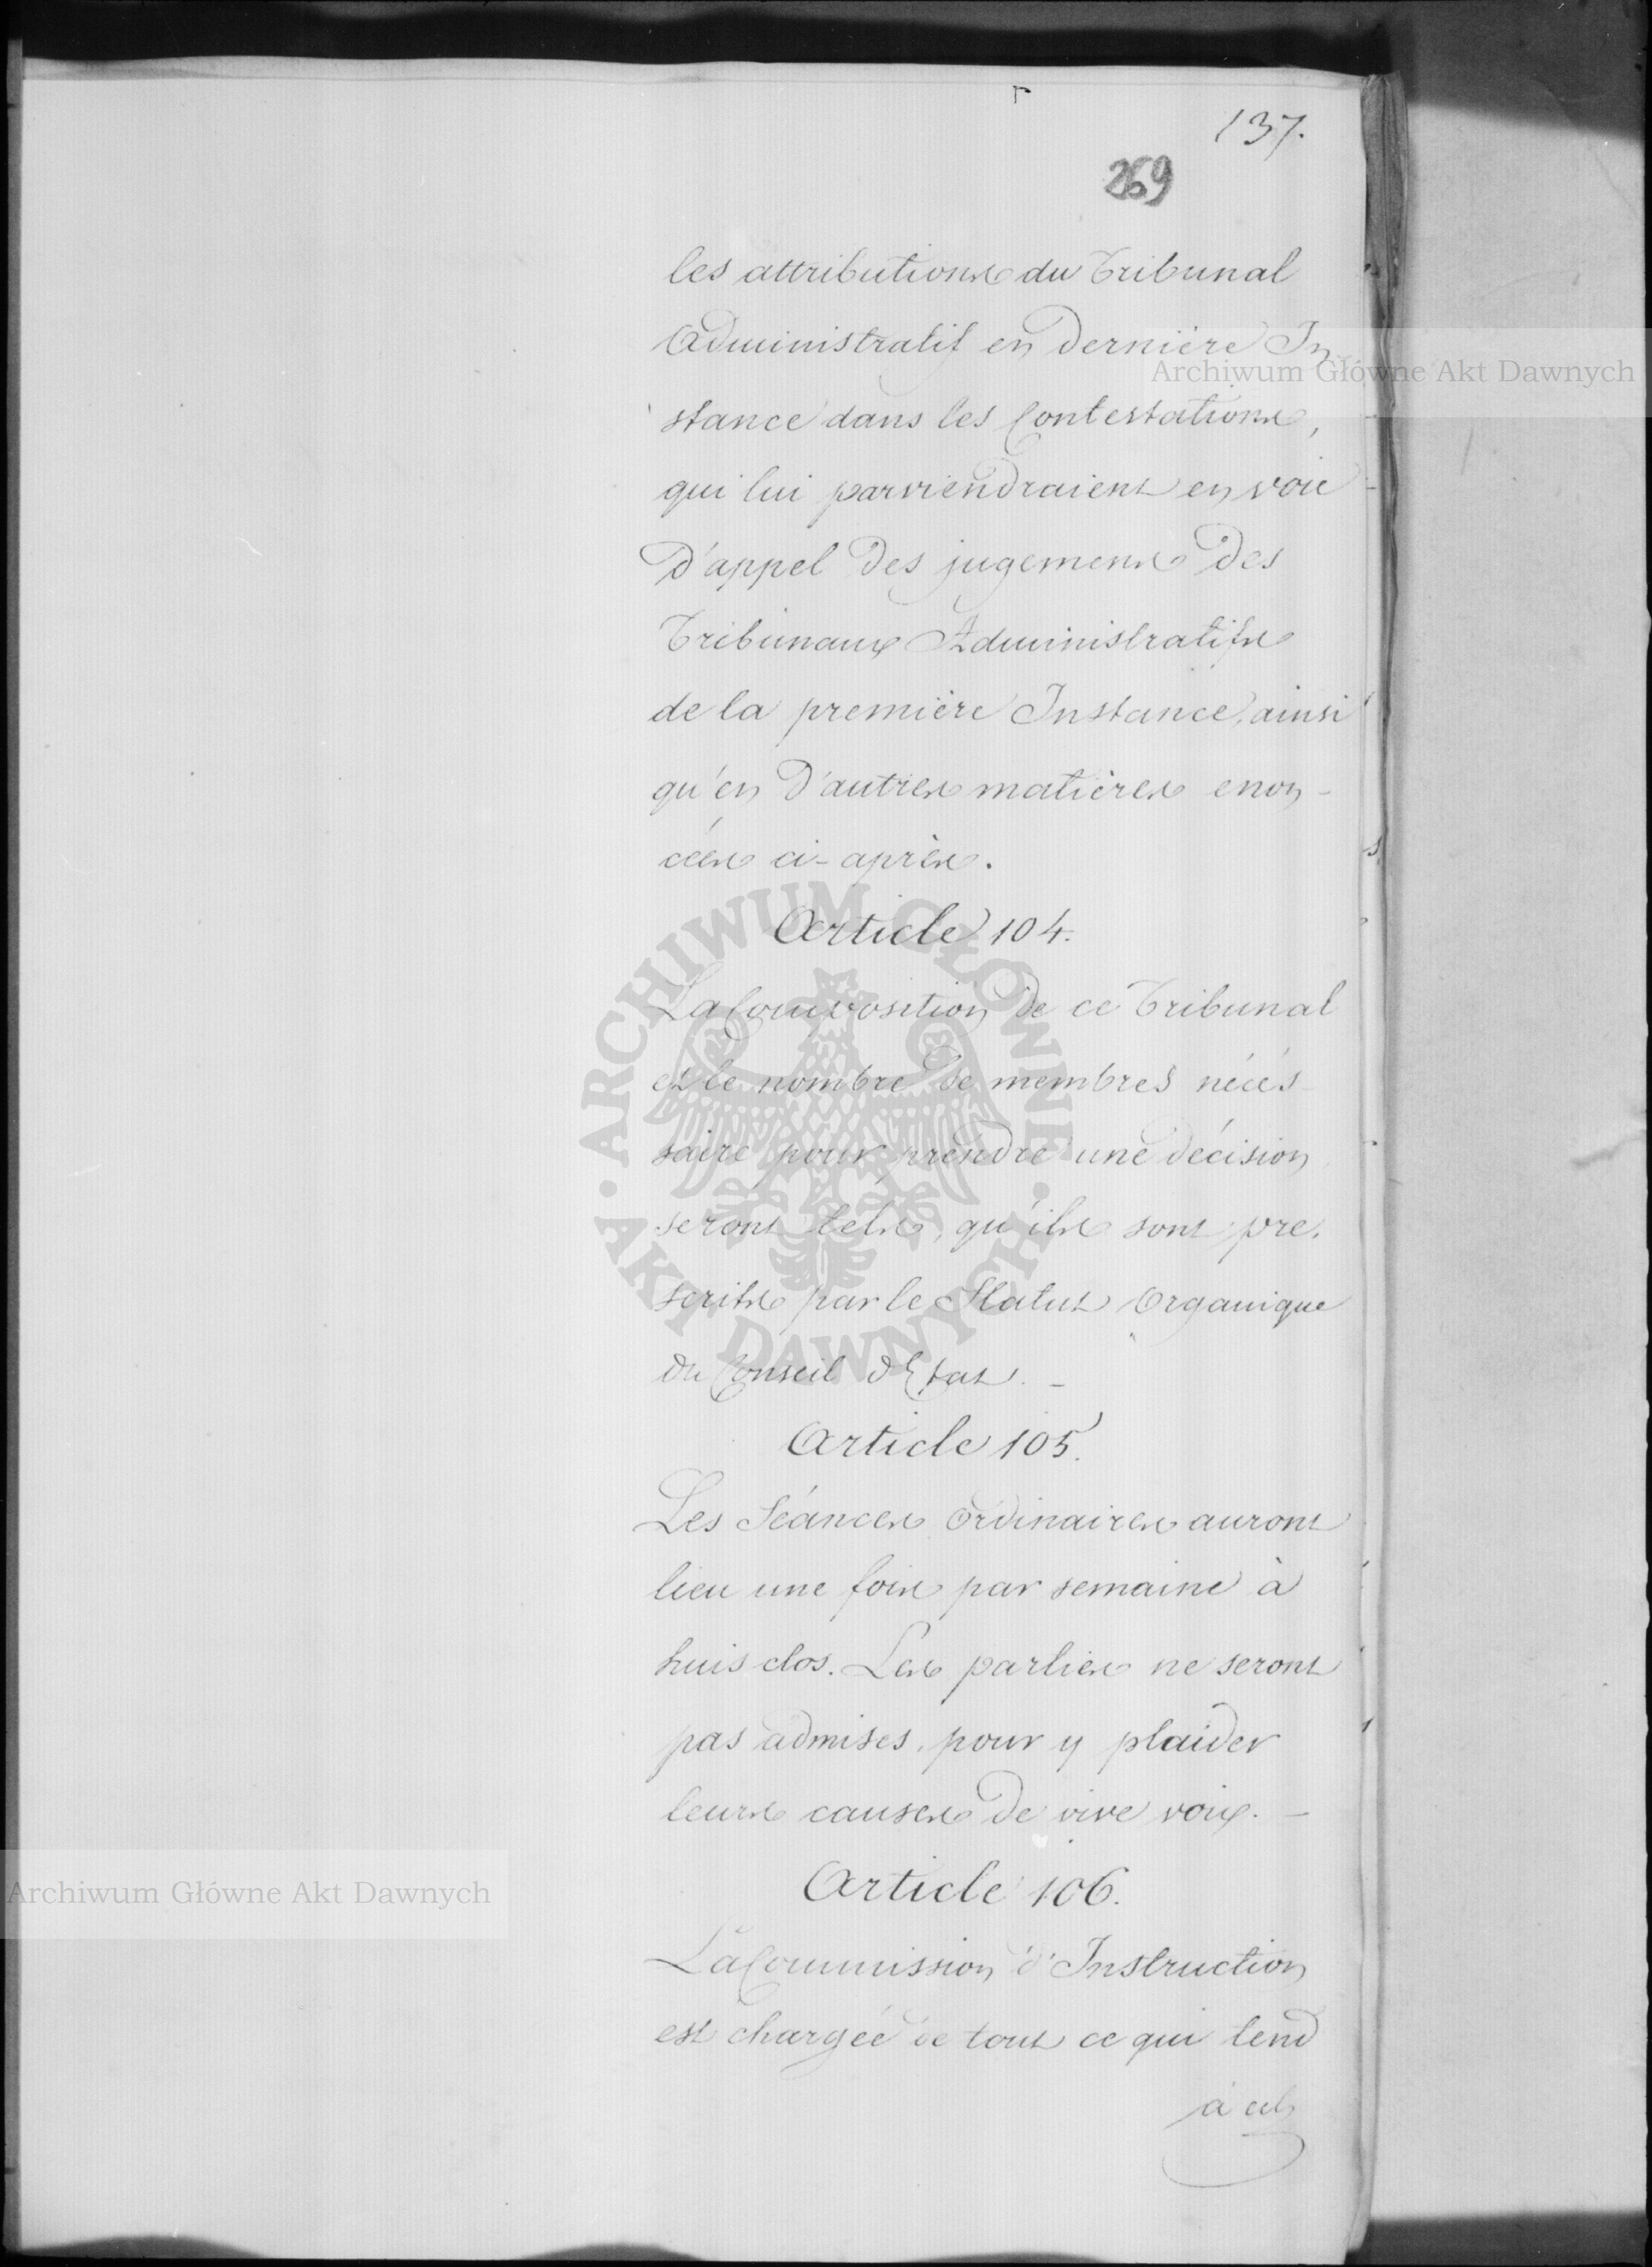 137.
269
les attributions du Tribunal
Administratif en dernière In
stance dans les Contestations,
qui lui parviendraient en voie
d'appel des jugemens des
Tribunaux Administratifs
de la première Instance, ainsi
qu'en d'autres matières enon-
cées ci-après.
Article 104.
La Composition de ce Tribunal
et le nombre de membres néces-
saire pour prendre une décision
seront tels, qu'ils sont pre-
scrits par le Statut Organique
du Conseil d'Etat. -
Article 105.
Les Séances ordinaires auront
lieu une fois par semaine à
huis clos. Les parties ne seront
pas admises, pour y plaider
leurs causes de vive voix. -
Article 106.
La Commission d'Instruction
est chargée de tout ce qui tend
à
Archiwum Główne Akt Dawnych
ARCHIWUM GŁÓWNE AKT DAWNYCH
Archiwum Główne Akt Dawnych